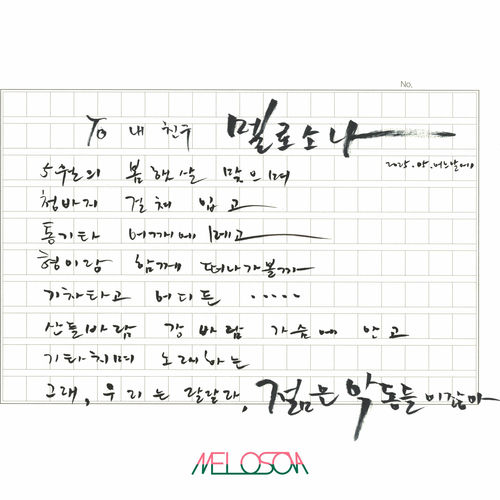 No.
To 내 친구 멜로소나
2025. 05. 어느날에
5월의 봄햇살 맞으며
청바지 걸쳐 입고
통기타 어깨에 메고
형이랑 함께 떠나가볼까
기차타고 어디든 .....
산들바람 강바람 가슴에 안고
기타치며 노래하는
그래, 우리는 랄랄라, 젊은 악동들이잖아
MELOSONA